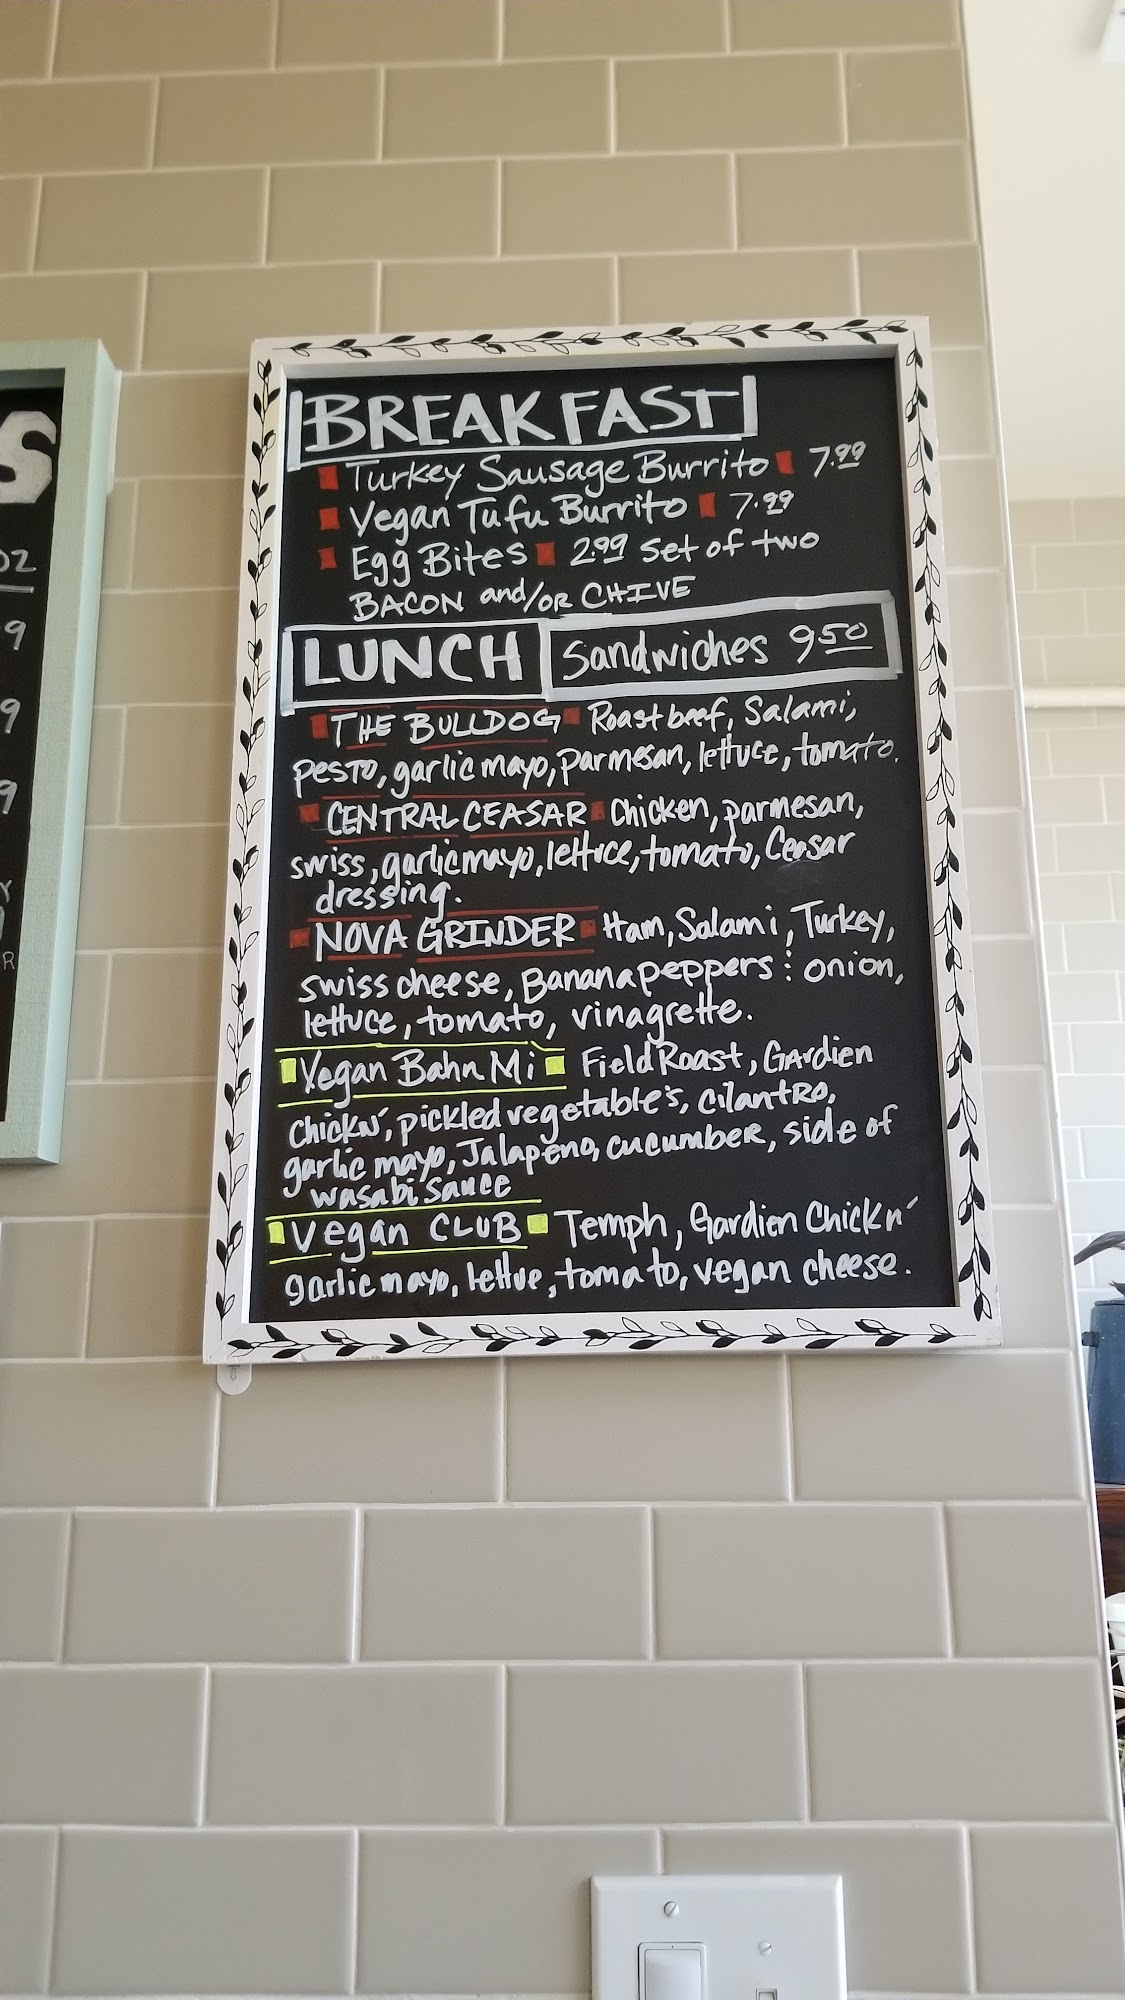 S
OZ
9
9
9
R
BREAKFAST
Turkey Sausage Burrito 7.99
Vegan Tufu Burrito 7.99
Egg Bites 2.99 set of two
BACON and/or CHIVE
LUNCH Sandwiches 9.50
THE BULLDOG Roast beef, Salami,
pesto, garlic mayo, parmesan, lettuce, tomato.
CENTRAL CEASAR Chicken, parmesan,
swiss, garlic mayo, lettuce, tomato, Ceasar
dressing.
NOVA GRINDER Ham, Salami, Turkey,
swiss cheese, Banana peppers : onion,
lettuce, tomato, vinagrette.
Vegan Bahn Mi Field Roast, GArdien
chickn', pickled vegetable's, cilantro,
garlic mayo, Jalapeno, cucumber, side of
wasabi sauce
Vegan CLUB Temph, Gardien Chickn'
garlic mayo, lettue, tomato, vegan cheese.